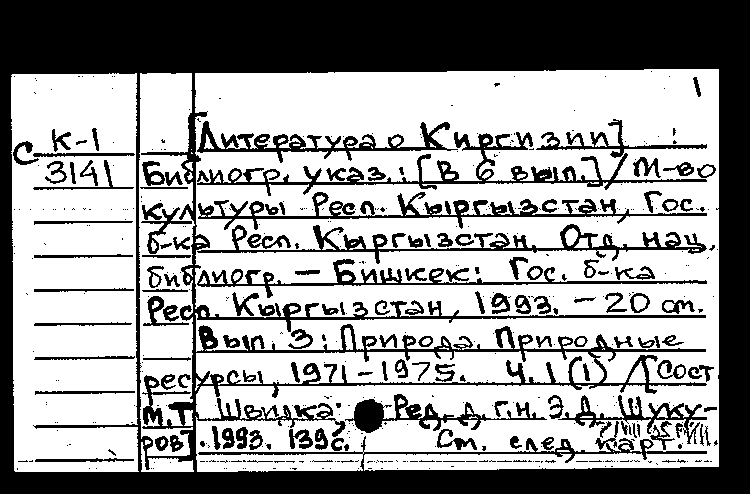 1
С К-1 [Литература о Киргизии]
3141 Библиогр. указ.: [В 6 вып.] / М-во
культуры Респ. Кыргызстан, Гос.
б-ка Респ. Кыргызстан. Отд. нац.
библиогр. — Бишкек: Гос. б-ка
Респ. Кыргызстан, 1993. - 20 см.
Вып. 3: Природа. Природные
ресурсы, 1971-1975. Ч. 1 (1) / [Сост.
М.Т. Швидка; Ред. д.г.н. Э.Д. Шуку-
ров]. 1993. 139с. См. след. карт.